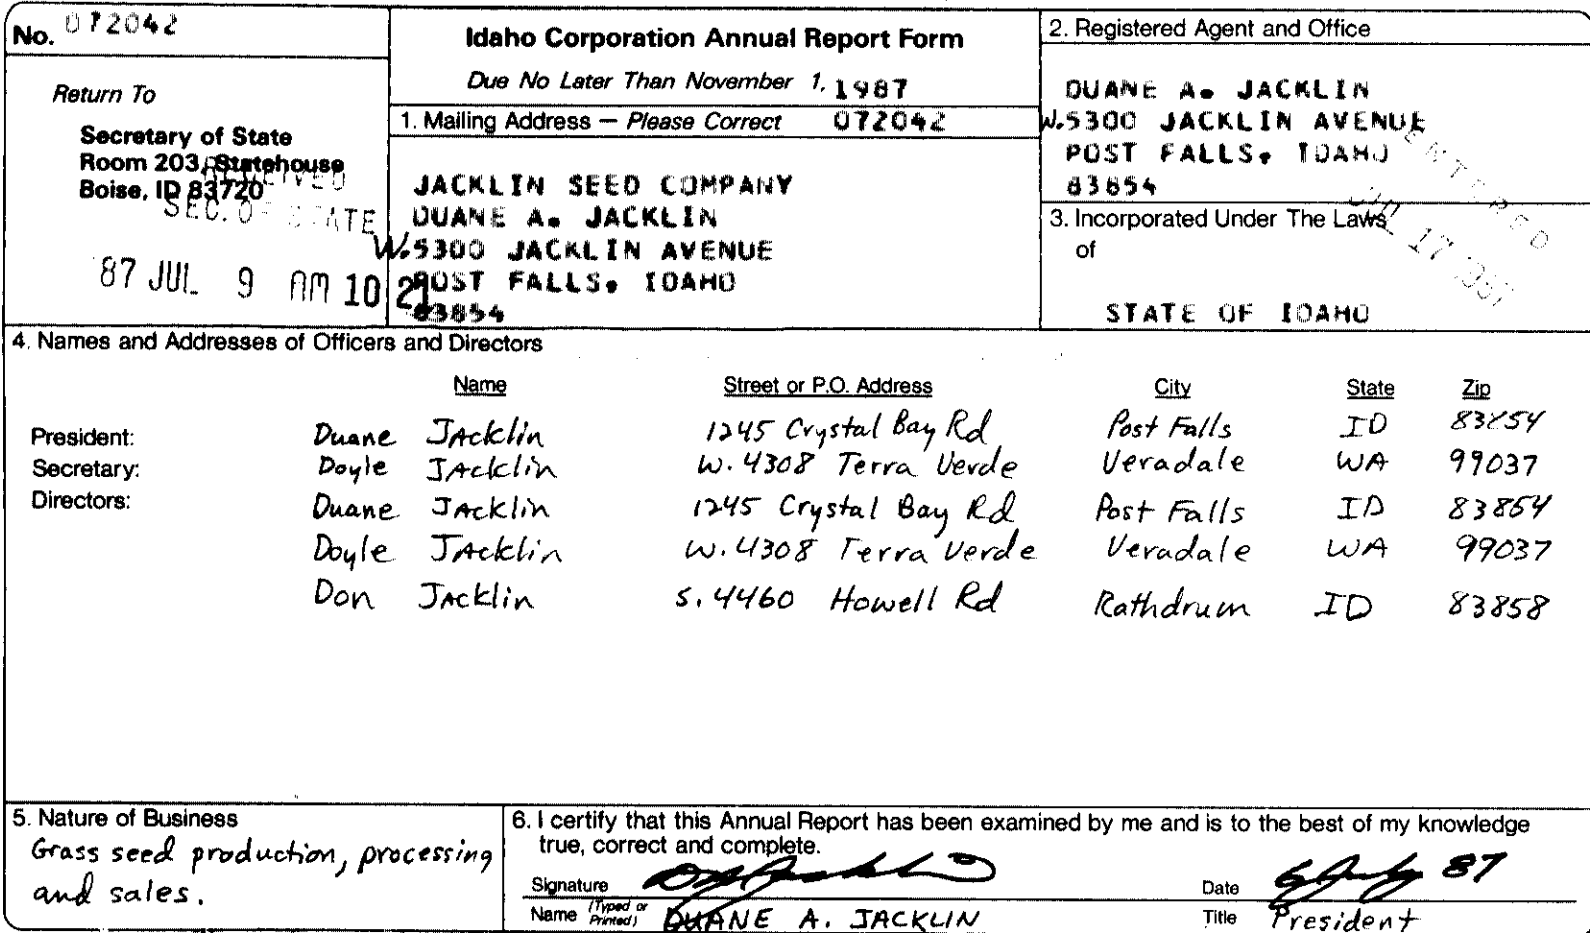 No. 072042
Return To
Secretary of State
Room 203, Statehouse
Boise, ID 83720
RECEIVED
SEC. OF STATE
87 JUL 9 AM 10 21
Idaho Corporation Annual Report Form
Due No Later Than November 1, 1987
1. Mailing Address — Please Correct 072042
JACKLIN SEED COMPANY
DUANE A. JACKLIN
W.5300 JACKLIN AVENUE
POST FALLS, IDAHO
83854
2. Registered Agent and Office
DUANE A. JACKLIN
W.5300 JACKLIN AVENUE
POST FALLS, IDAHO
83854
ENTERED
JUL 17 1987
3. Incorporated Under The Laws
of
STATE OF IDAHO
4. Names and Addresses of Officers and Directors
Name Street or P.O. Address City State Zip
President: Duane Jacklin 1245 Crystal Bay Rd Post Falls ID 83854
Secretary: Doyle Jacklin W. 4308 Terra Verde Veradale WA 99037
Directors: Duane Jacklin 1245 Crystal Bay Rd Post Falls ID 83854
Doyle Jacklin W. 4308 Terra Verde Veradale WA 99037
Don Jacklin S. 4460 Howell Rd Rathdrum ID 83858
5. Nature of Business
Grass seed production, processing
and sales.
6. I certify that this Annual Report has been examined by me and is to the best of my knowledge
true, correct and complete.
Signature Date 6 July 87
Name (Typed or Printed) DUANE A. JACKLIN Title President